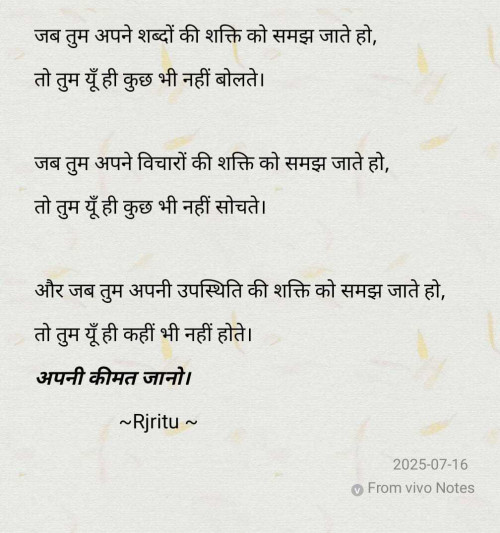 जब तुम अपने शब्दों की शक्ति को समझ जाते हो,
तो तुम यूँ ही कुछ भी नहीं बोलते।
जब तुम अपने विचारों की शक्ति को समझ जाते हो,
तो तुम यूँ ही कुछ भी नहीं सोचते।
और जब तुम अपनी उपस्थिति की शक्ति को समझ जाते हो,
तो तुम यूँ ही कहीं भी नहीं होते।
अपनी कीमत जानो।
~Rjritu ~
2025-07-16
From vivo Notes